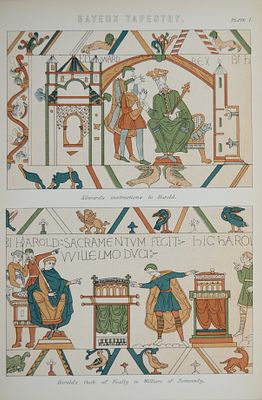 BAYEUX TAPESTRY.
PLATE 1.
EDWARD REX
Edward's instructions to Harold.
HAROLD: SACRAMENTUM FECIT:- HIC HAROL
WILLELMO DUCI:-
Harold's Oath of Fealty to William of Normandy.